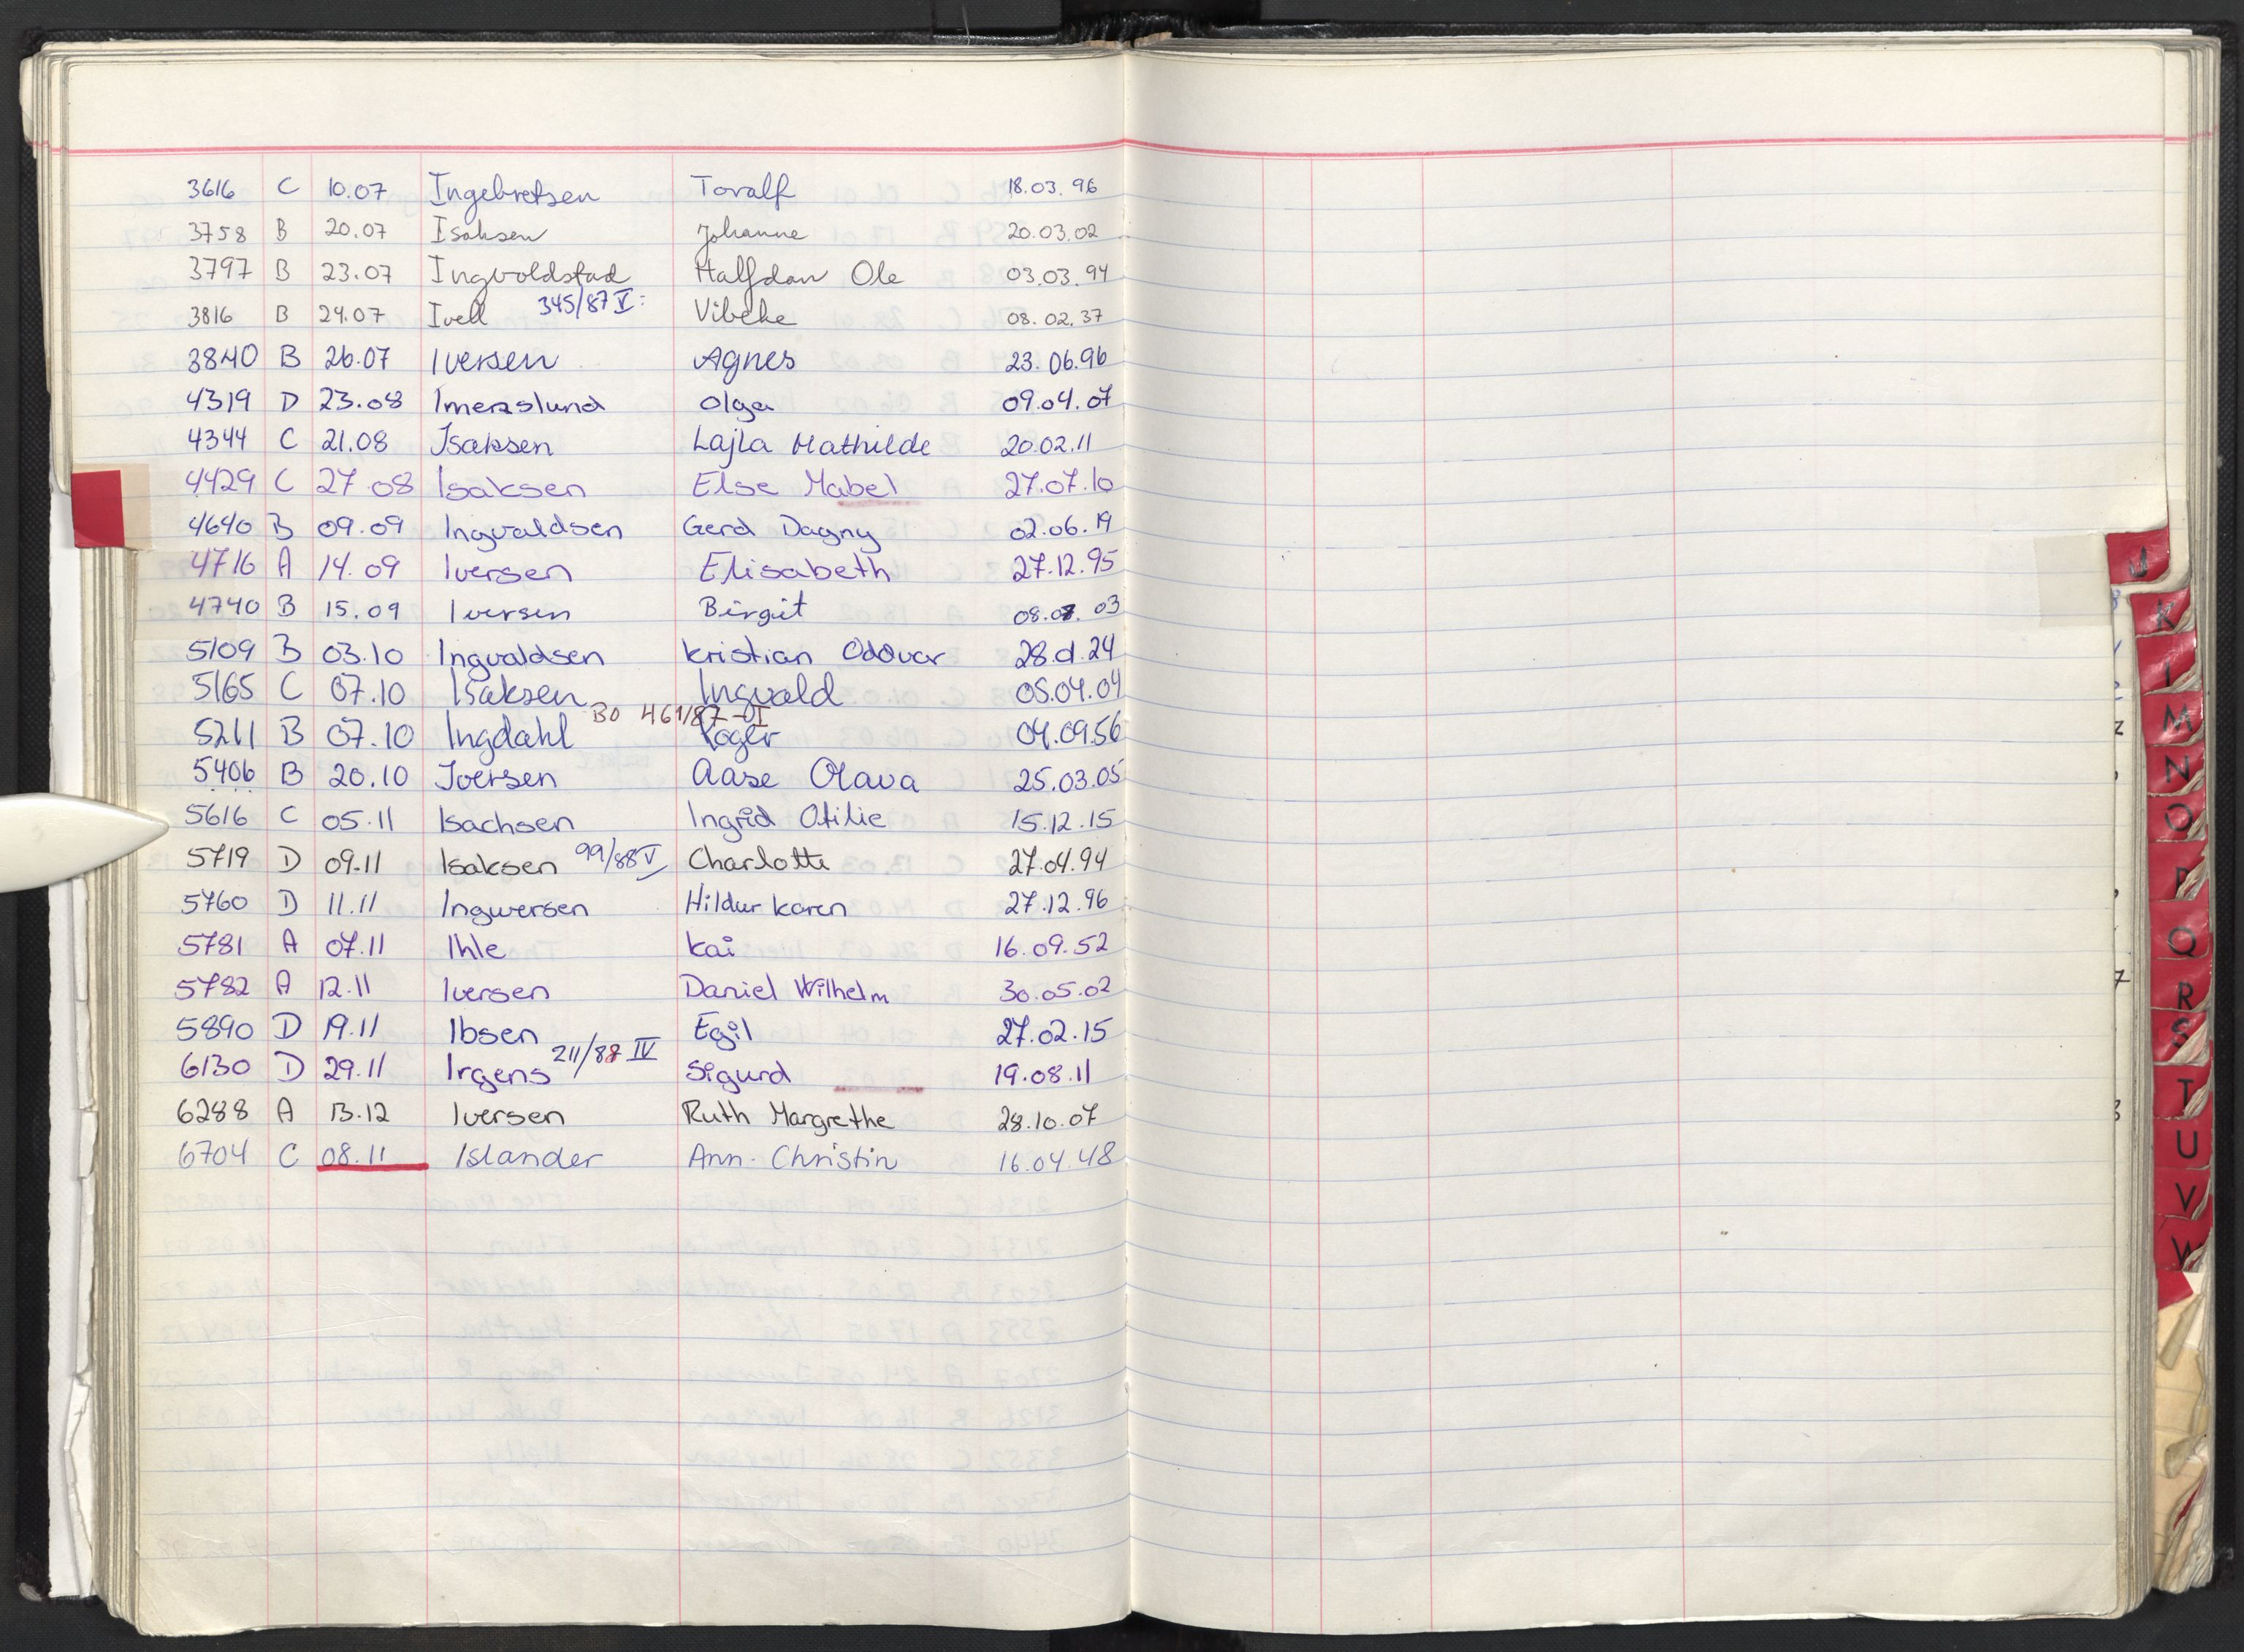 3616 C 10.07 Ingebretsen Toralf 18.03.96
3758 B 20.07 Isaksen Johanne 20.03.02
3797 B 23.07 Ingvoldstad Halfdan Ole 03.03.94
3816 B 24.07 Ivell 345/87 V: Vibeke 08.02.37
3840 B 26.07 Iversen Agnes 23.06.96
4319 D 23.08 Imerslund Olga 09.04.07
4344 C 21.08 Isaksen Lajla Mathilde 20.02.11
4429 C 27.08 Isaksen Else Mabel 27.07.10
4640 B 09.09 Ingvaldsen Gerd Dagny 02.06.19
4716 A 14.09 Iversen Elisabeth 27.12.95
4740 B 15.09 Iversen Birgit 08.03
5109 B 03.10 Ingvaldsen Kristian Oddvar 28.d.24
5165 C 07.10 Isaksen Ingvald 05.04.04
BO 461/87-OI
5211 B 07.10 Ingdahl Roger 04.09.56
5406 B 20.10 Iversen Aase Olava 25.03.05
5616 C 05.11 Isachsen Ingrid Otilie 15.12.15
5719 D 09.11 Isaksen 99/88 V Charlotte 27.04.94
5760 D 11.11 Ingwersen Hildur Karen 27.12.96
5781 A 07.11 Ihle Kai 16.09.52
5782 A 12.11 Iversen Daniel Wilhelm 30.05.02
5890 D 19.11 Ibsen Egil 27.02.15
6130 D 29.11 Irgens 211/88 IV Sigurd 19.08.11
6288 A 13.12 Iversen Ruth Margrethe 28.10.07
6704 C 08.11 Islander Ann-Christin 16.04.48
J
K
M
N
O
P
Q
R
S
T
U
V
W